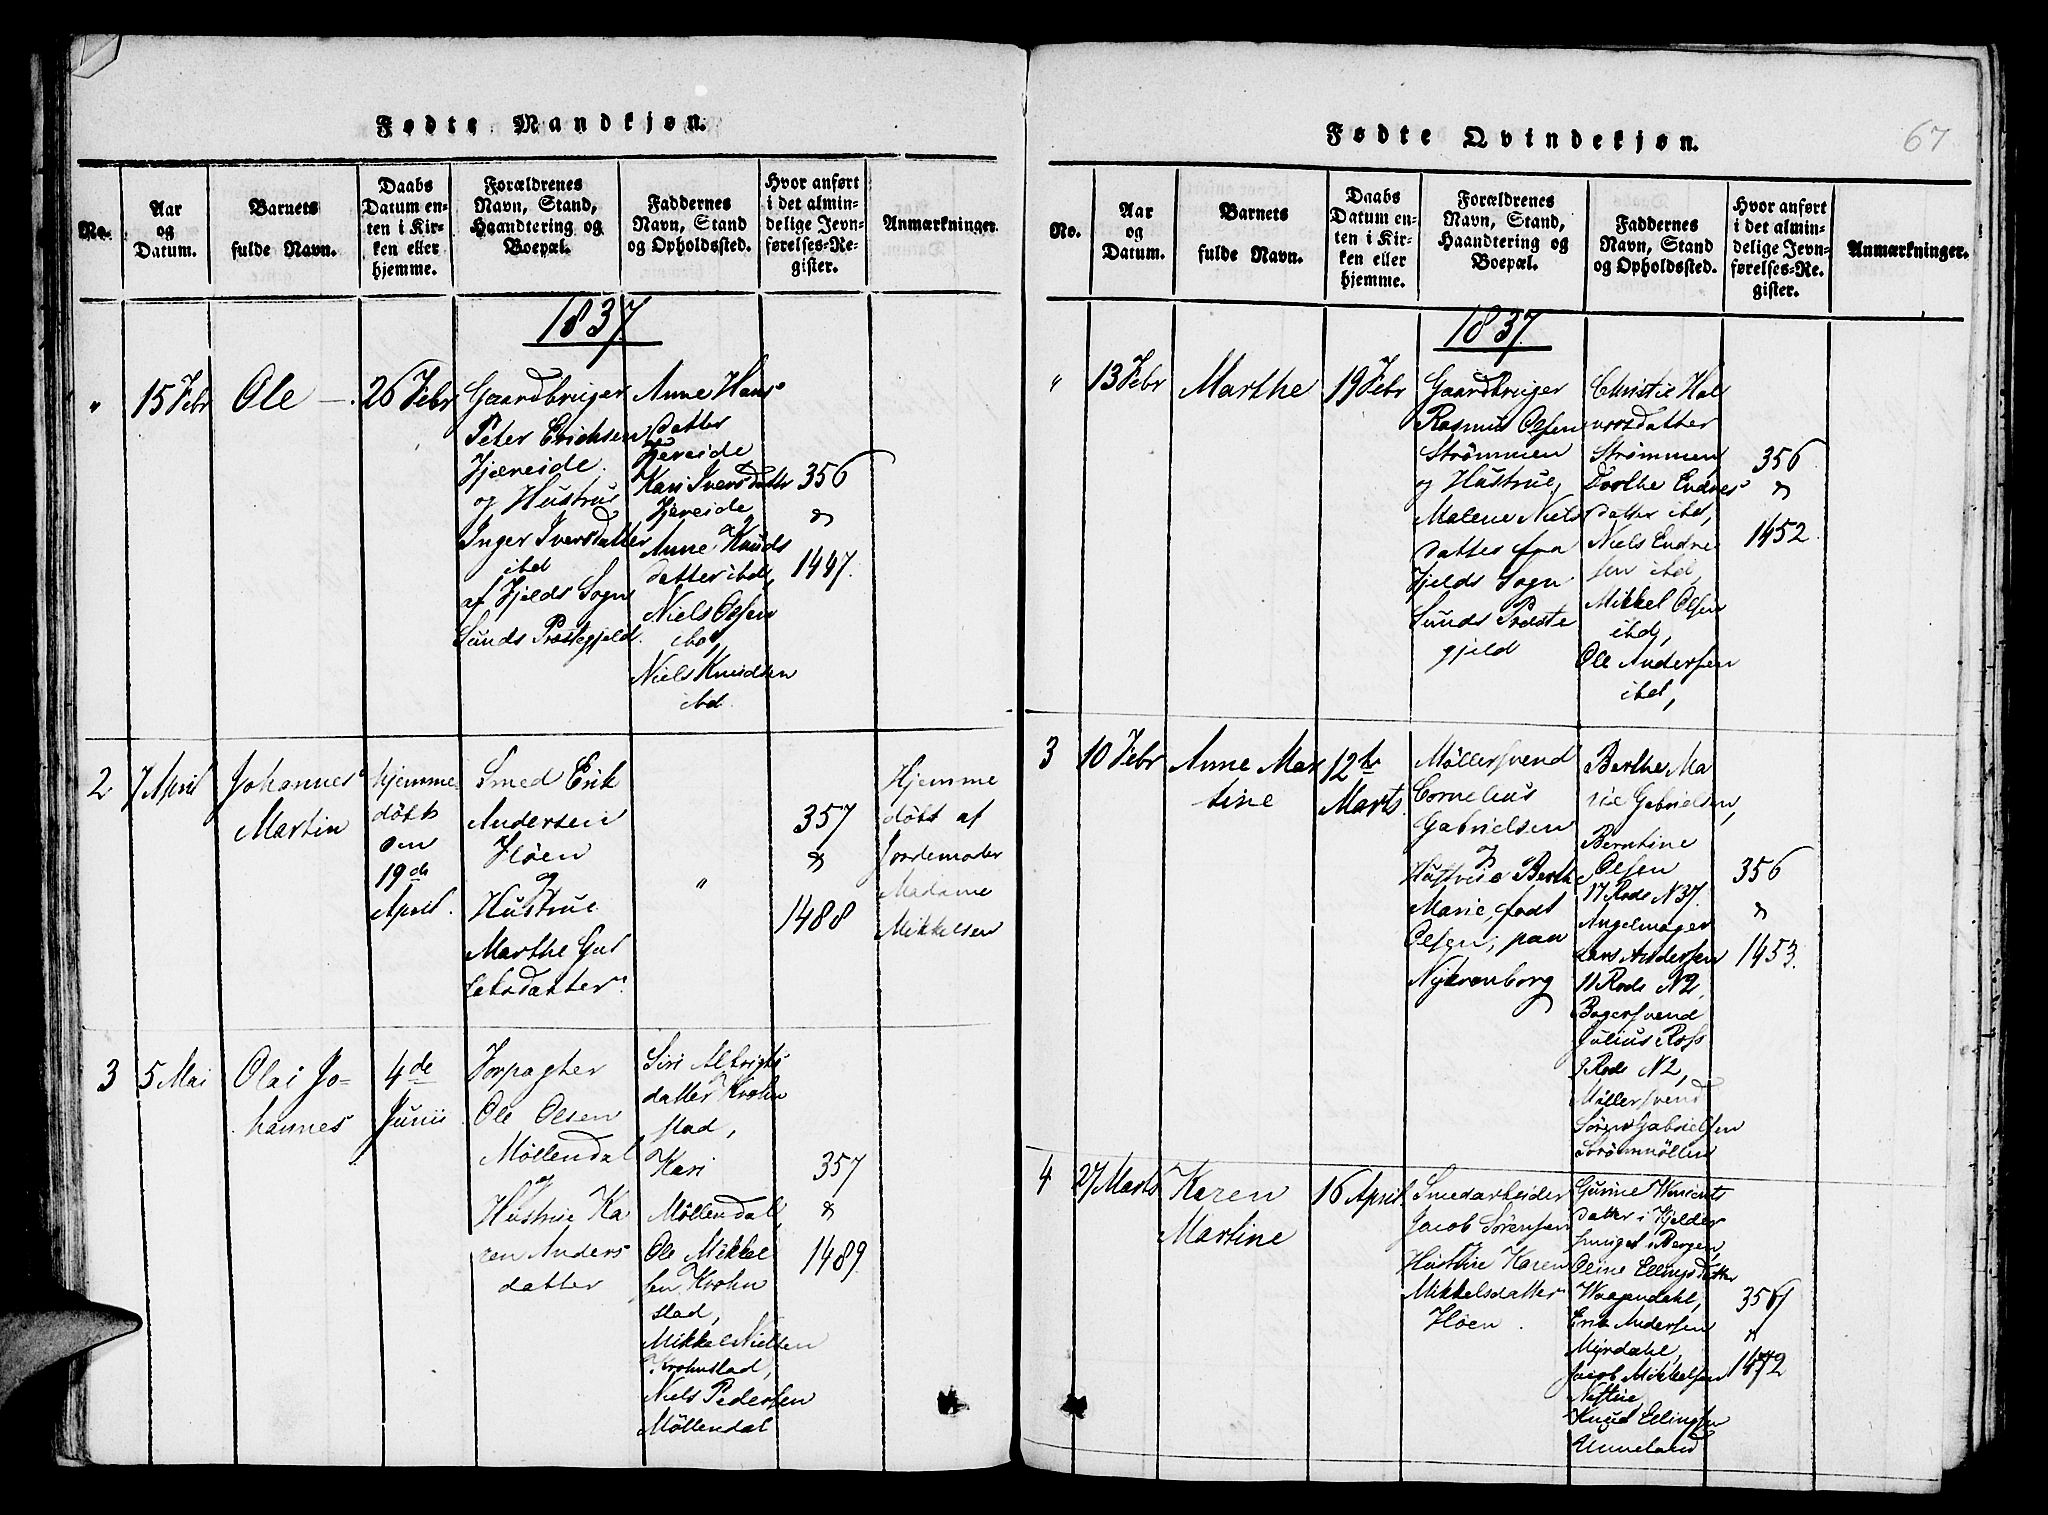 Fødte Mandkjøn.
No.
Aar
og
Datum.
Barnets
fulde Navn.
Daabs
Datum en-
ten i Kir-
ken eller
hjemme.
Forældrenes
Navn, Stand,
Haandtering og
Boepæl.
Faddernes
Navn, Stand
og Opholdssted.
Hvor anført
i det almin-
delige Jevn-
førelses-Re-
gister.
Anmærkninger.
1837.
"
15 Febr
Ole —.
26 Febr
Gaardbruger
Peter Erichsen
Hjæreide
og Hustrue
Inger Iversdatter
ibd
af Fjelds Sogn
Sunds Præstegjeld.
Anne Hans
datter
Hjereide
Kari Iversdatter
Hjereide
Anne Knuds
datter ibd,
Niels Olsen
ibd,
Niels Knudsen
ibd.
356
&
1447.
2
7 April
Johannes
Martin
hjemme
døbt
den
19de
April.
Smed Erik
Andersen
Høen
og
Hustrue
Marthe Gut
tetsdatter.
"
357
&
1488
Hjemme
døbt af
Jordemoder
Madame
Mikkelsen
3
5 Mai
Olai Jo-
hannes
4de
Junii
Forpagter
Ole Olsen
Møllendal
og
Hustrue Ka
ren Anders
datter
Siri Albrigts
datter Krohn
stad,
Kari
Møllendal,
Ole Mikkel
sen Krohn
stad,
Mikkel Nielsen
Krohnstad,
Niels Pedersen
Møllendal
357
&
1489.
Fødte Qvindekjøn.
67
No.
Aar
og
Datum.
Barnets
fulde Navn.
Daabs
Datum en-
ten i Kir-
ken eller
hjemme.
Forældrenes
Navn, Stand,
Haandtering og
Boepæl.
Faddernes
Navn, Stand
og Opholdssted.
Hvor anført
i det almin-
delige Jevn-
førelses-Re-
gister.
Anmærkninger.
1837.
"
13 Febr
Marthe
19 Febr
Gaardbruger
Rasmus Olsen
Strømmen
og Hustrue,
Malene Niels
datter fra
Fjelds Sogn
Sunds Præste
gjeld
Christie Hal
vorsdatter
Strømmen,
Dorthe Endres
datter ibd,
Niels Endre
sen ibd,
Mikkel Olsen
ibd,
Ole Andersen
ibd,
356
&
1452.
3
10 Febr
Anne Mar
tine
12te
Marts.
Møllersvend
Cornelius
Gabrielsen
og
Hustrue Berthe
Marie, født
Olsen, paa
Nykronborg
Berthe Ma
rie Gabrielsen,
Berntine
Olsen
17 Rode N 37.
Angelmager
Lars Andersen
11 Rode N 2,
Bagersvend
Julius Ross
9 Rode N 2,
Møllersvend
Søren Gabrielsen
Storemøllen
356
&
1453.
4
27 Marts
Karen
Martine
16 April.
Smedarbeider
Jacob Sørensen
og
Hustrue Karen
Mikkelsdatter
Høen.
Gurine Vincents
datter i Kjelder
smuget i Bergen,
Oline Ellingsdatter
Wogndahl,
Erik Andersen
Myrdahl,
Jacob Mikkelsen
Nesttue
Knud Ellingsen
Unneland
356
&
1472